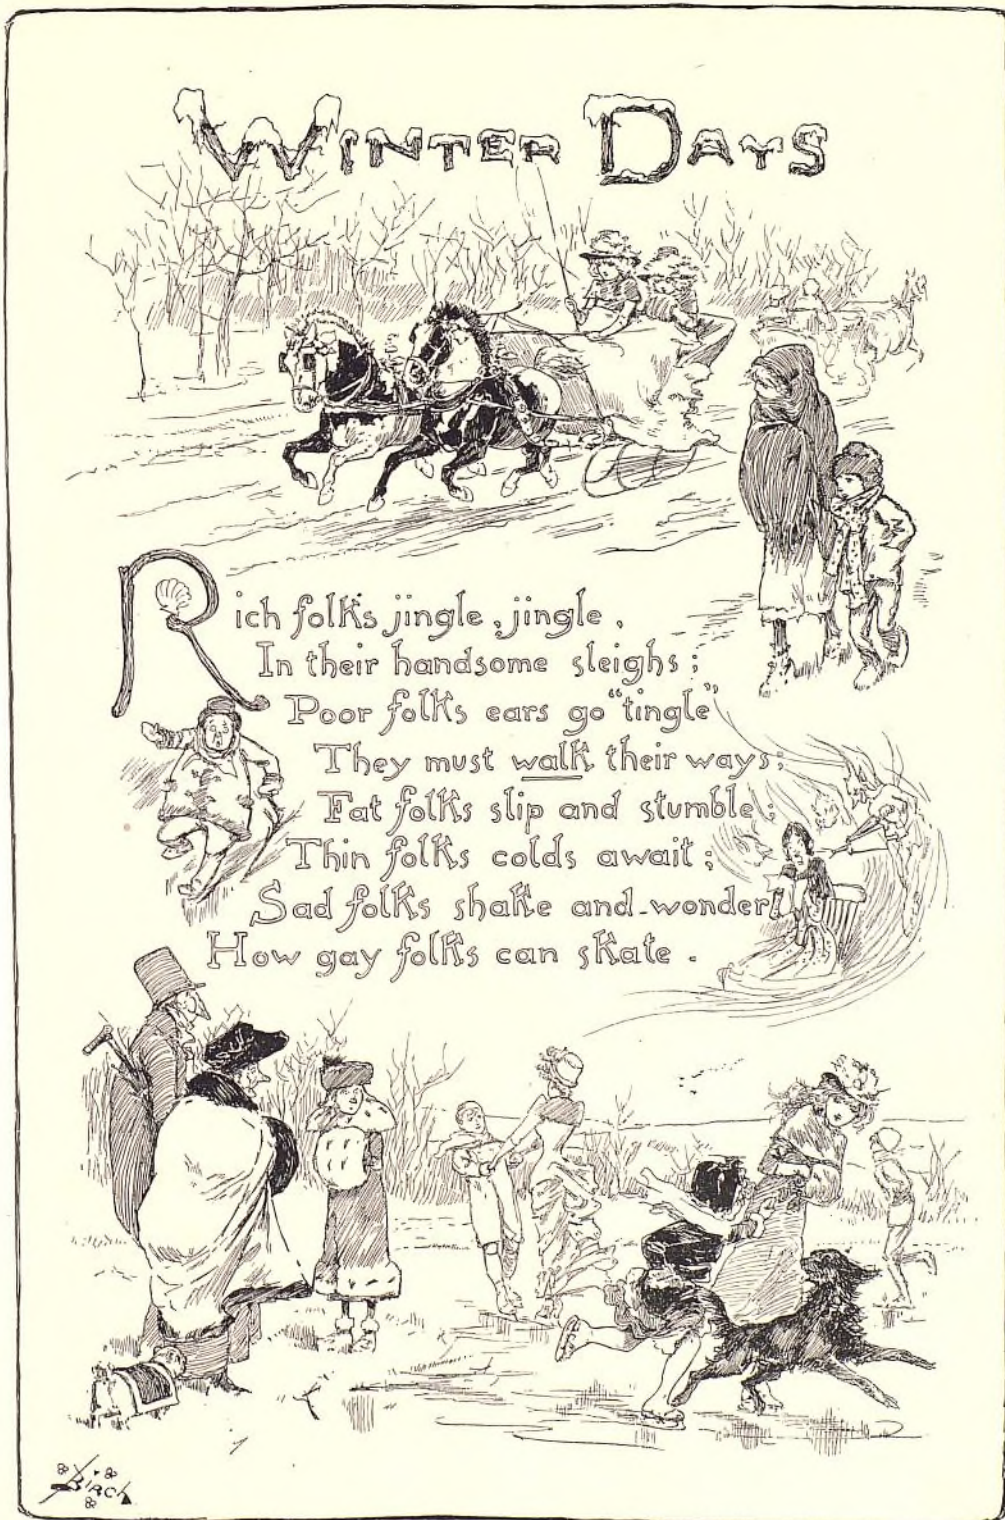 Winter Days
Rich folks jingle, jingle,
In their handsome sleighs;
Poor folks ears go "tingle",
They must walk their ways;
Fat folks slip and stumble;
Thin folks colds await;
Sad folks shake and wonder
How gay folks can skate.
Birch